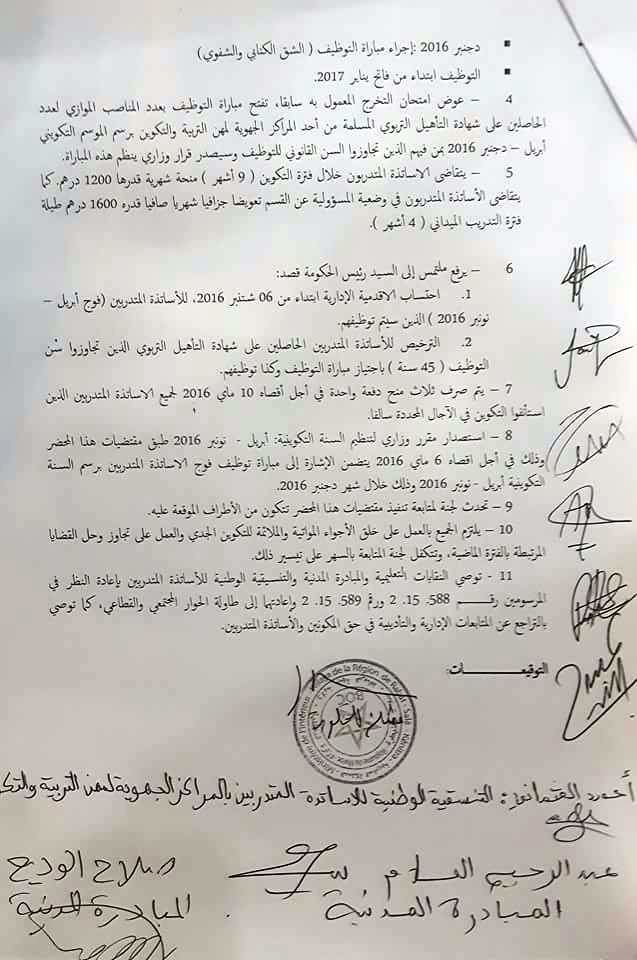 ▪ دجنبر 2016 :إجراء مباراة التوظيف ( الشق الكتابي والشفوي)
▪ التوظيف ابتداء من فاتح يناير 2017.
4 – عوض امتحان التخرج المعمول به سابقا، تفتح مباراة التوظيف بعدد المناصب الموازي لعدد
الحاصلين على شهادة التأهيل التربوي المسلمة من أحد المراكز الجهوية لمهن التربية والتكوين برسم الموسم التكويني
أبريل – دجنبر 2016 بمن فيهم الذين تجاوزوا السن القانوني للتوظيف وسيصدر قرار وزاري ينظم هذه المباراة.
5 – يتقاضى الاساتذة المتدربون خلال فترة التكوين ( 9 أشهر ) منحة شهرية قدرها 1200 درهم. كما
يتقاضى الأساتذة المتدربون في وضعية المسؤولية عن القسم تعويضا جزافيا شهريا صافيا قدره 1600 درهم طيلة
فترة التدريب الميداني ( 4 أشهر ).
6 – يرفع ملتمس إلى السيد رئيس الحكومة قصد:
1. احتساب الاقدمية الإدارية ابتداء من 06 شتنبر 2016، للأساتذة المتدربين (فوج أبريل –
نونبر 2016 ) الذين سيتم توظيفهم.
2. الترخيص للأساتذة المتدربين الحاصلين على شهادة التأهيل التربوي الذين تجاوزوا سن
التوظيف ( 45 سنة ) باجتياز مباراة التوظيف وكذا توظيفهم.
7 – يتم صرف ثلاث منح دفعة واحدة في أجل أقصاه 10 ماي 2016 لجميع الاساتذة المتدربين الذين
استأنفوا التكوين في الآجال المحددة سالفا.
8 – استصدار مقرر وزاري لتنظيم السنة التكوينية: أبريل - نونبر 2016 طبق مقتضيات هذا المحضر
وذلك في أجل اقصاه 6 ماي 2016 يتضمن الإشارة إلى مباراة توظيف فوج الاساتذة المتدربين برسم السنة
التكوينية أبريل - نونبر 2016 وذلك خلال شهر دجنبر 2016.
9 – تحدث لجنة لمتابعة تنفيذ مقتضيات هذا المحضر تتكون من الأطراف الموقعة عليه.
10 – يلتزم الجميع بالعمل على خلق الأجواء المواتية والملائمة للتكوين الجدي والعمل على تجاوز وحل القضايا
المرتبطة بالفترة الماضية، وتتكفل لجنة المتابعة بالسهر على تيسير ذلك.
11 - توصي النقابات التعليمية والمبادرة المدنية والتنسيقية الوطنية للأساتذة المتدربين بإعادة النظر في
المرسومين رقم 588. 15. 2 ورقم 589. 15. 2 واعادتهما إلى طاولة الحوار المجتمعي والقطاعي، كما توصي
بالتراجع عن المتابعات الإدارية والتأديبية في حق المكونين والأساتذة المتدربين.
التوقيعات:
de la Région de Rabat - Salé - Kénitra
Ministère de l'Intérieur
التنسيقية الوطنية للأساتذة المتدربين بالمراكز الجهوية لمهن التربية
عبد الرحيم
المبادرة المدنية
صلاح الوديع
المبادرة المدنية